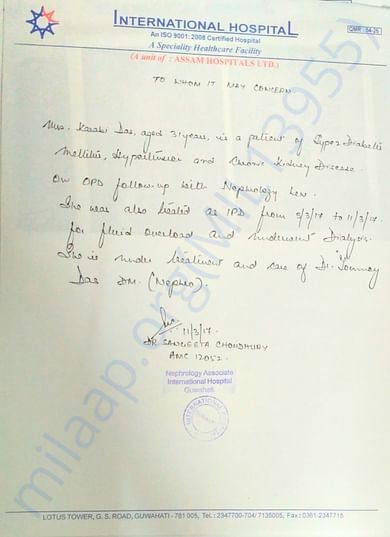 INTERNATIONAL HOSPITAL
An ISO 9001: 2008 Certified Hospital
QMR : 04-25
A Speciality Healthcare Facility
(A unit of : ASSAM HOSPITALS LTD.)
TO WHOM IT MAY CONCERN
Mrs. Karabi Das, aged 31 years, is a patient of Type 2 Diabetes
Mellitus, Hypertension and Chronic Kidney Disease
On OPD follow-up with Nephrology here.
She was also treated as IPD from 5/3/17 to 11/3/17
for fluid overload and underwent Dialysis.
She is under treatment and care of Dr.
Das DM. (Nephro).
11/3/17.
DR SANGEETA CHOUDHURY
AMC 12052.
Nephrology Associate
International Hospital
Guwahati
milaap.org
LOTUS TOWER, G. S. ROAD, GUWAHATI - 781 005, Tel. : 2347700-704/ 7135005, Fax : 0361-2347715